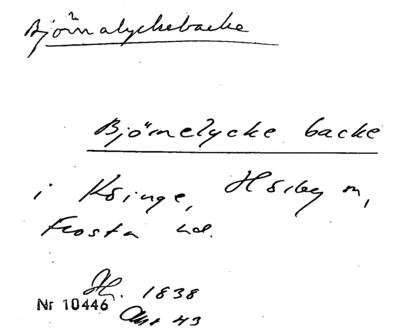 Björnalyckebacke
Björnelycke backe
i Ksinge, Hörby sn,
Frosta hd.
1838
Nr 10446
Akt 43